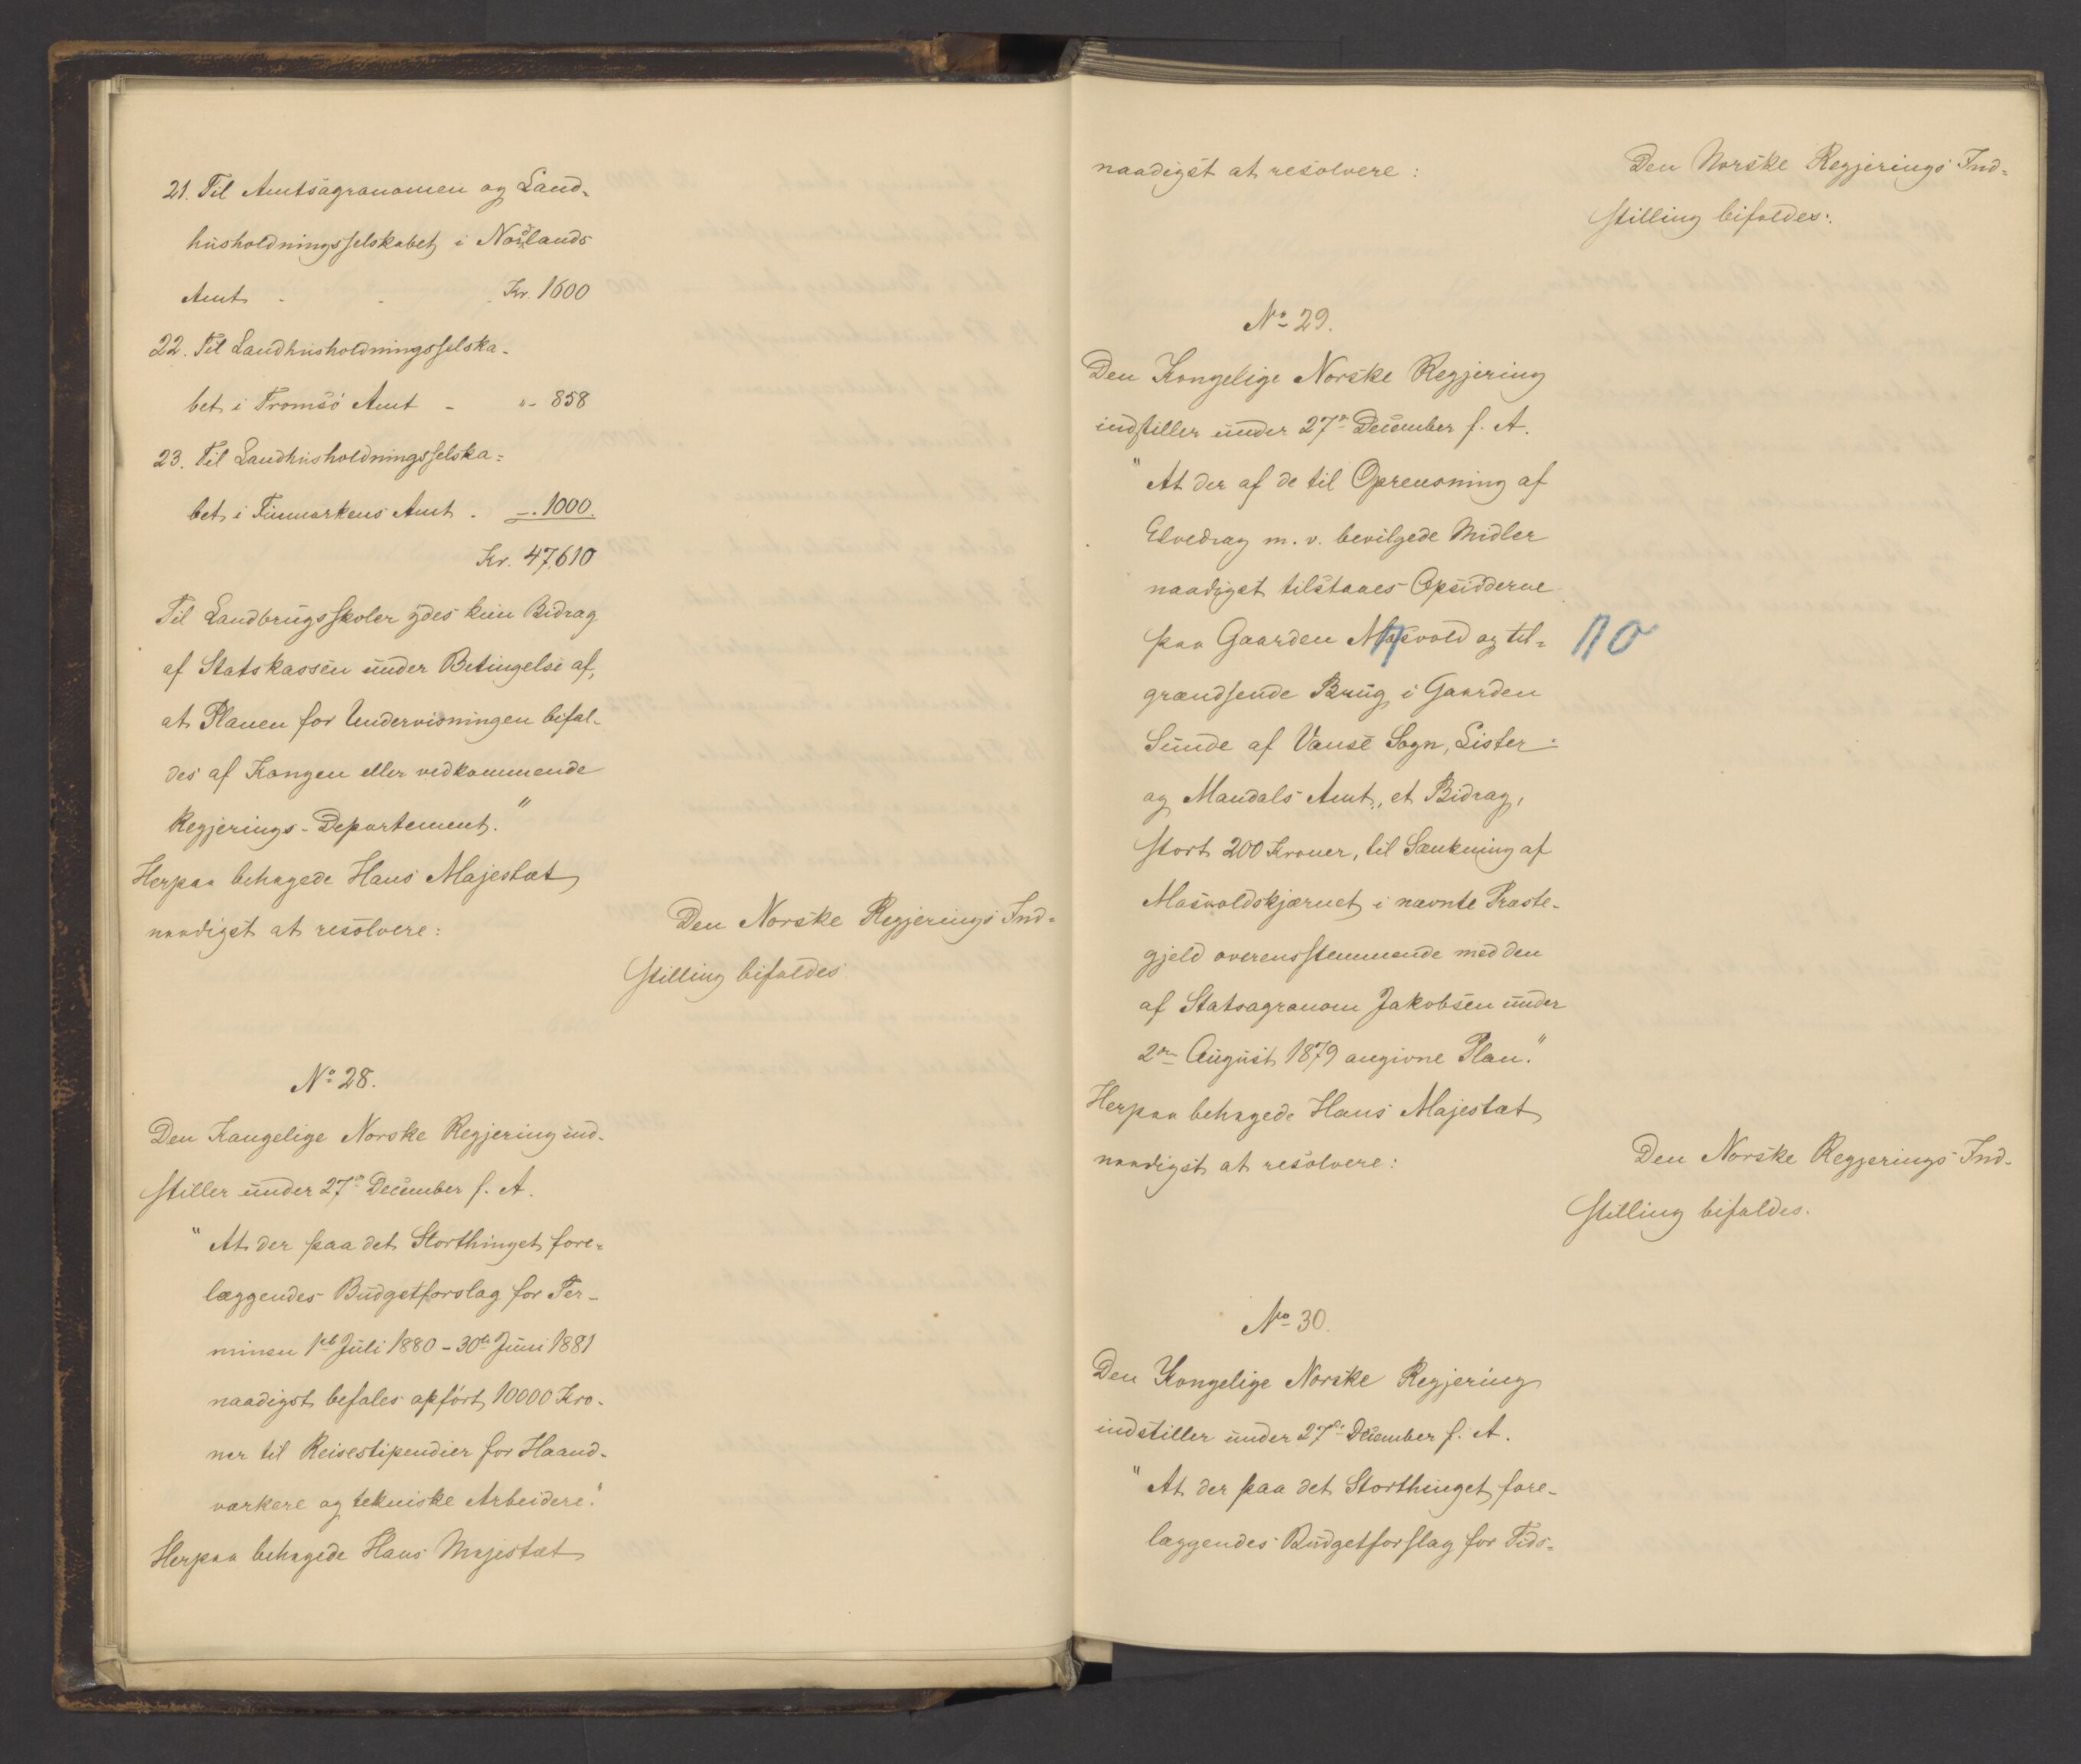 21. Til Amtsagronomen og Land-
husholdningsselskabet i Nordlands
Amt - - Kr. 1600
22. Til Landhusholdningsselska-
bet i Tromsö Amt - "- 858
23. Til Landhusholdningsselska=
bet i Finmarkens Amt . -. 1000.
Kr. 47,610
Til Landbrugsskoler ydes kun Bidrag
af Statskassen under Betingelse af,
at Planen for Undervisningen bifal-
des af Kongen eller vedkommende
Regjerings-Departement."
Herpaa behagede Hans Majestæt
naadigst at resolvere:
Den Norske Regjerings Ind=
stilling bifaldes
No 28.
Den Kongelige Norske Regjering ind-
stiller under 27de December f. A.
"At der paa det Storthinget fore=
læggendes Budgetforslag for Ter-
minen 1ste Juli 1880 - 30te Juni 1881
naadigst befales opført 10000 Kro-
ner til Reisestipendier for Haand-
værkere og tekniske Arbeidere."
Herpaa behagede Hans Majestæt
naadigst at resolvere:
Den Norske Regjerings Ind=
stilling bifaldes.
No 29.
Den Kongelige Norske Regjering
indstiller under 27de December f. A.
"At der af de til Oprensning af
Elvedrag m. v. bevilgede Midler
naadigst tilstaaes Opsidderne
paa Gaarden Maavold og til=
grændsende Brug i Gaarden
Sunde af Vanse Sogn, Lister=
og Mandals Amt, et Bidrag,
stort 200 Kroner, til Sænkning af
Masvoldskjærnet i nævnte Præste-
gjeld overensstemmende med den
af Statsagronom Jakobsen under
2den August 1879 angivne Plan."
Herpaa behagede Hans Majestæt
naadigst at resolvere:
Den Norske Regjerings Ind-
stilling bifaldes.
No 30.
Den Kongelige Norske Regjering
indstiller under 27de December f. A.
"At der paa det Storthinget fore-
læggendes Budgetforslag for Tids=